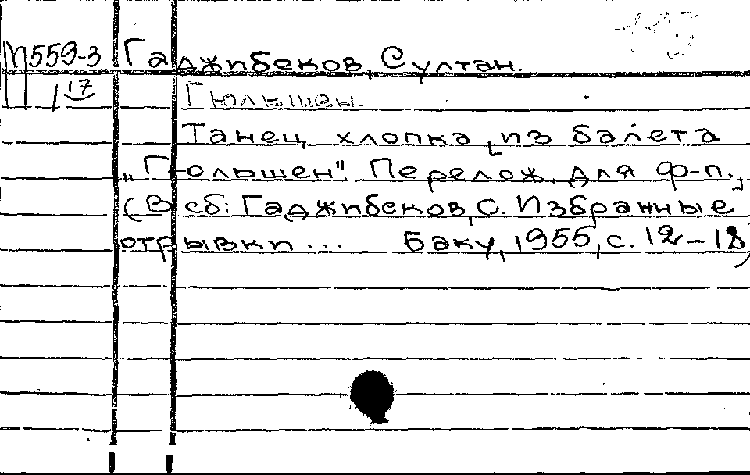 М559-3 Гаджибеков, Султан.
17 Гюльшен.
Танец хлопка, из балета
„Гюльшен". Перелож. для ф-п.
(В сб: Гаджибеков, С. Избранные
отрывки... Баку, 1955, с. 12-18)